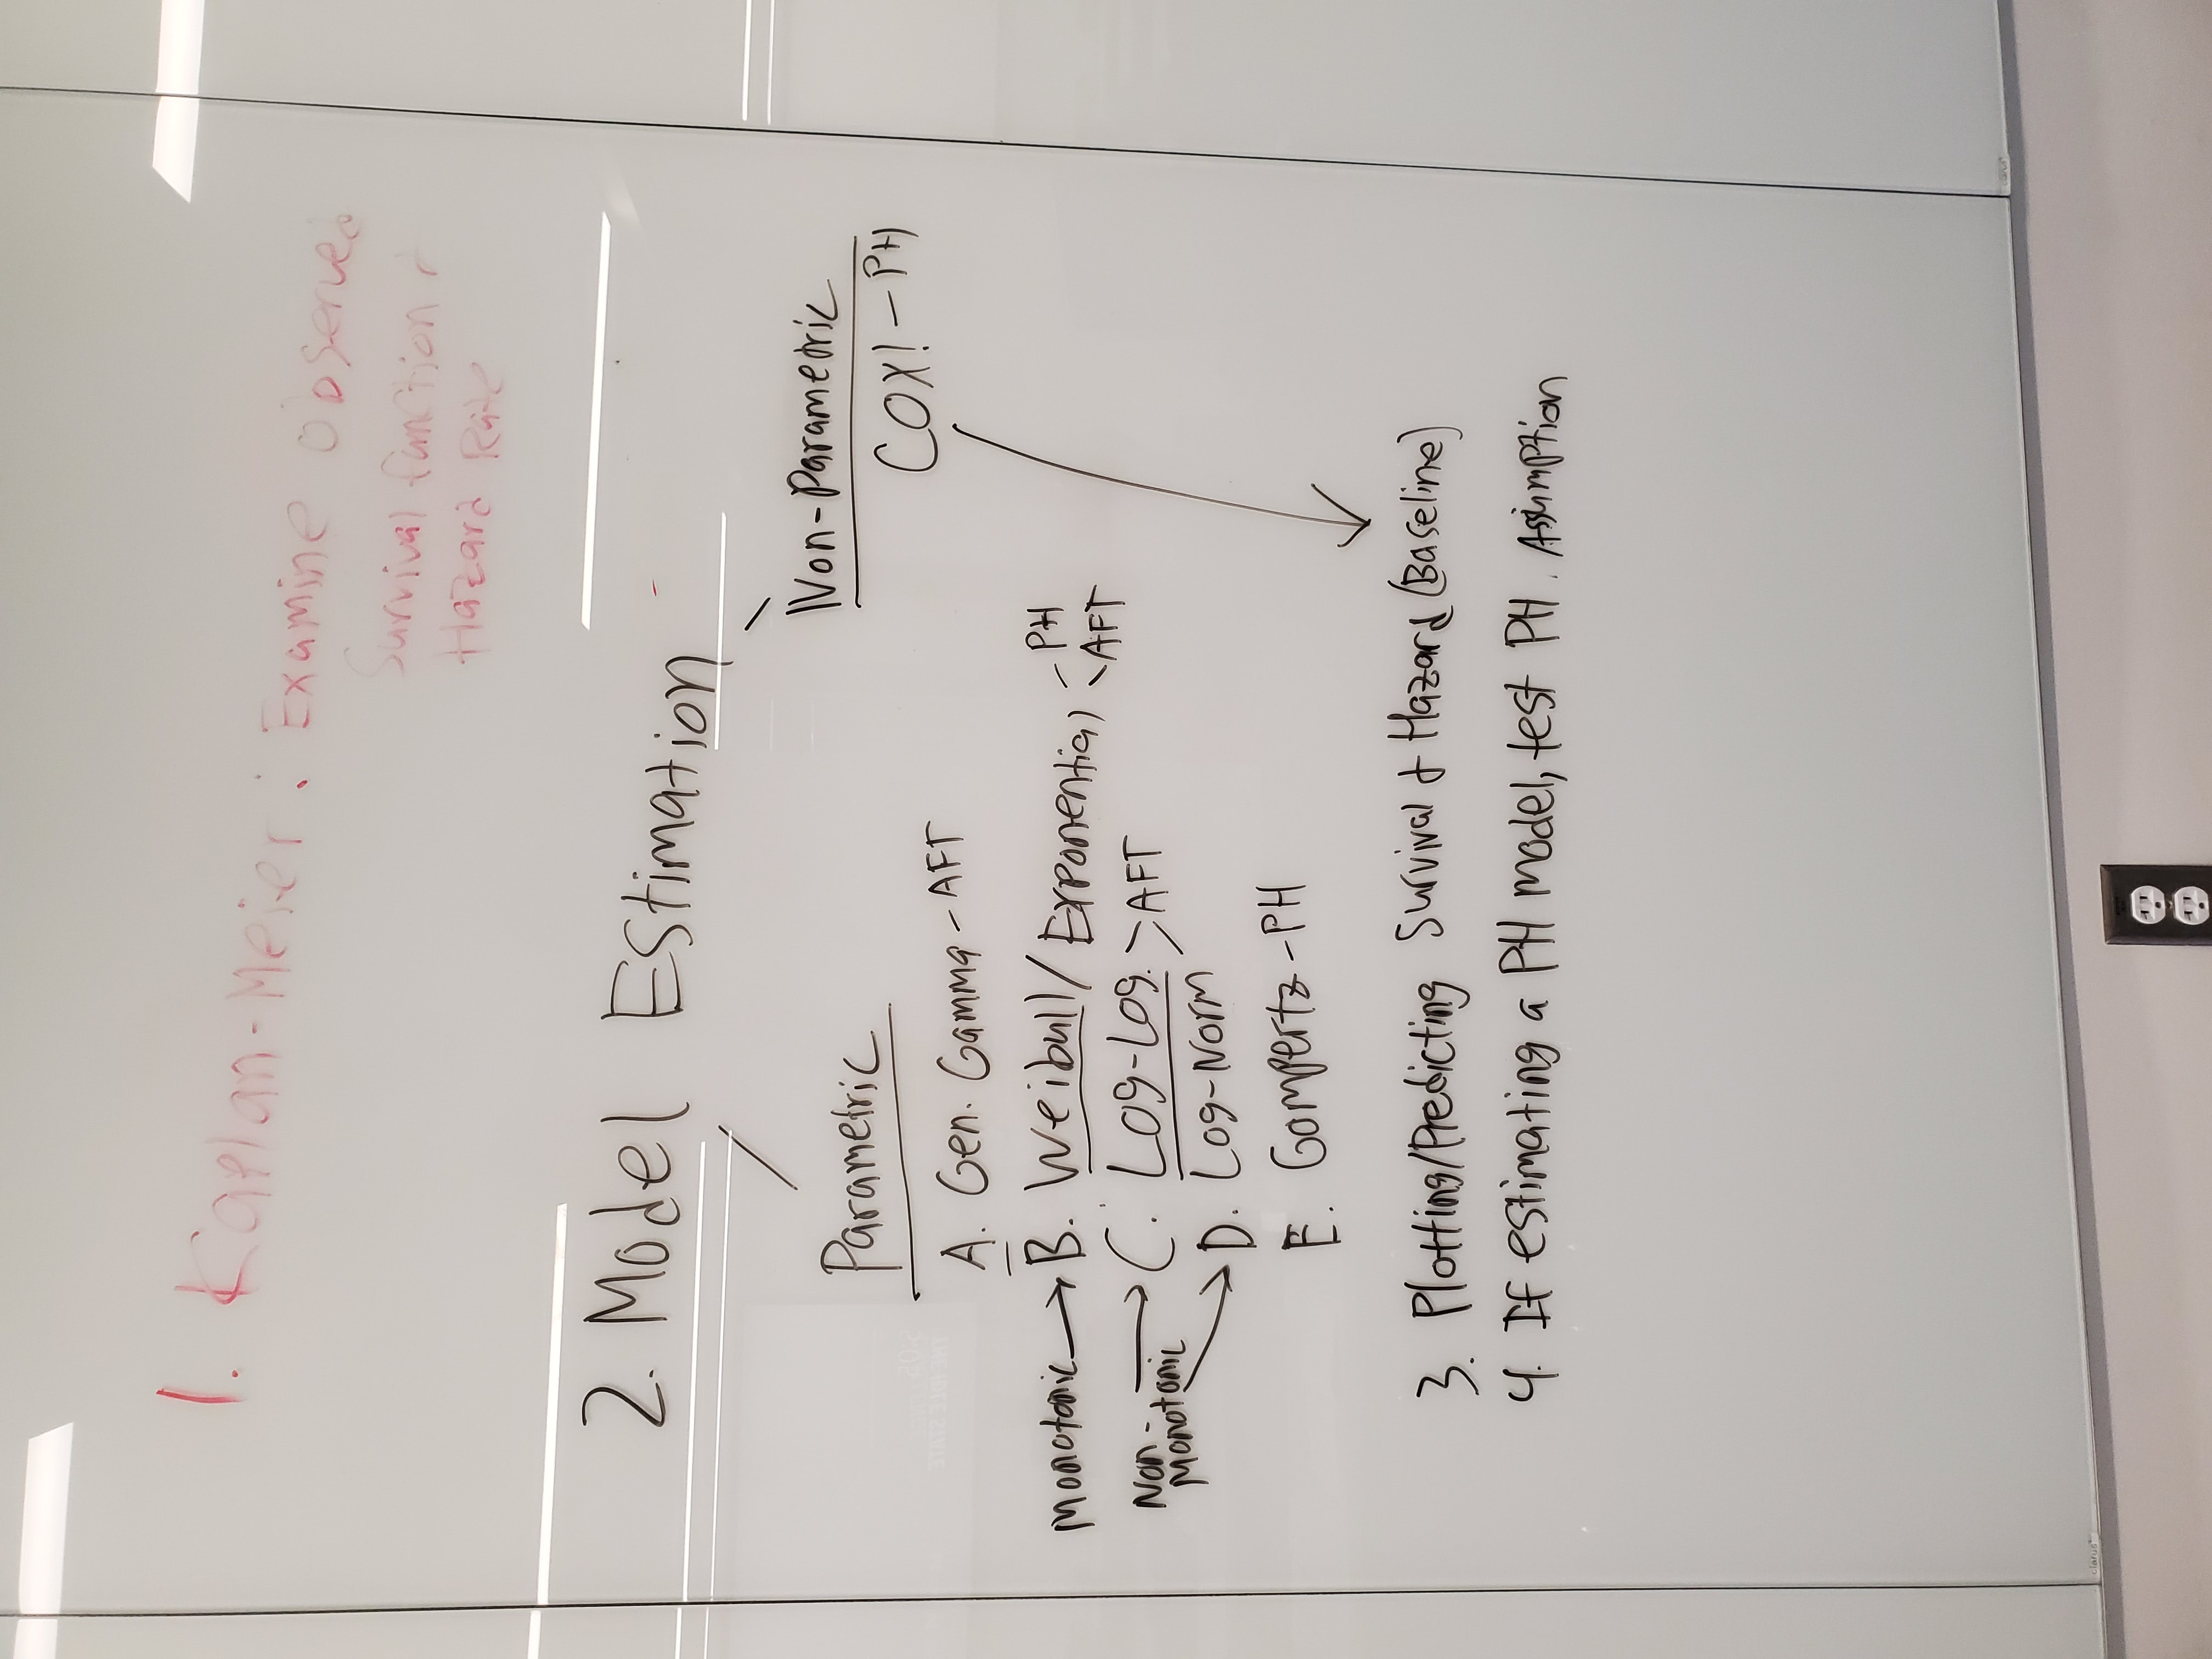 1. Kaplan-Meier : Examine observed
Survival function &
Hazard Rate
2. Model Estimation
Parametric
Non-Parametric
COX! - PH
A. Gen. Gamma - AFT
Monotonic → B. Weibull / Exponential - PH
- AFT
Non-
Monotonic → C. Log-Log. > AFT
→ D. Log-Norm
E. Gompertz - PH
3. Plotting/Predicting Survival & Hazard (Baseline)
4. If estimating a PH model, test PH. Assumption
clarus
clarus